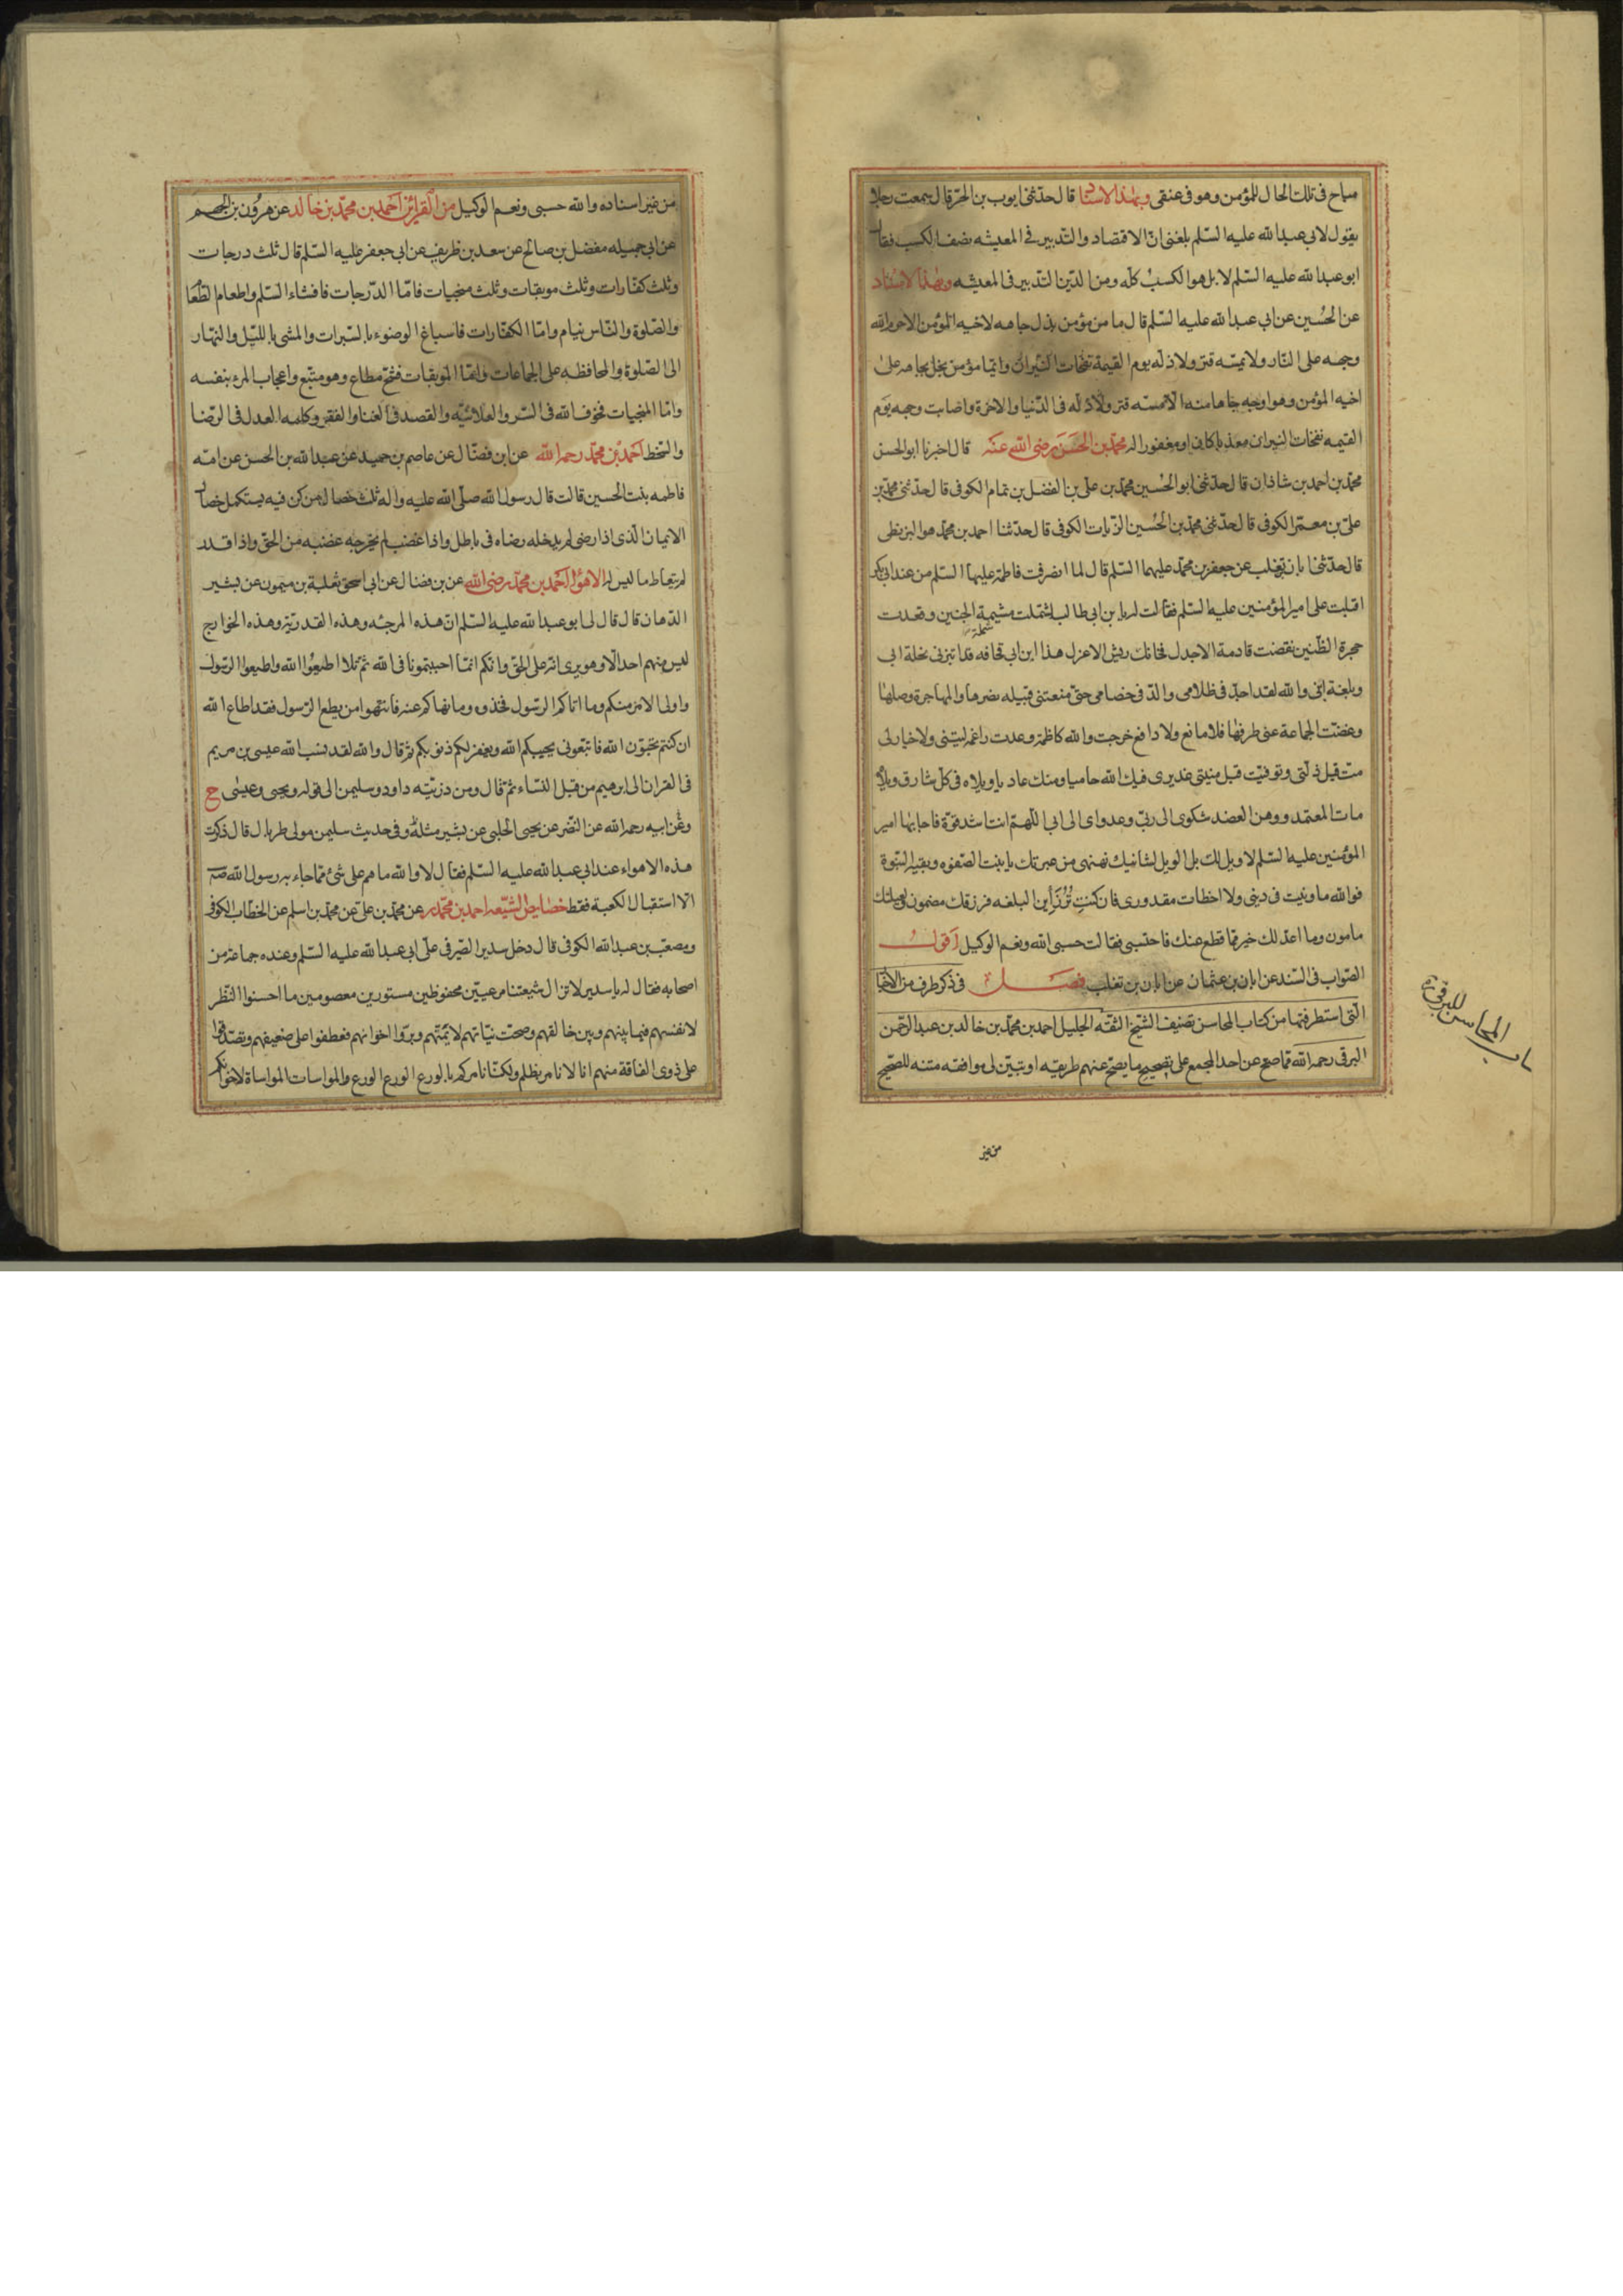 مباح فی تلك الحال للمؤمن وهو فی عنقی وبهذا الاسناد قال حدّثنی ایوب بن الحرّ قال سمعت رجلا
یقول لابی عبدالله علیه السّلم بلغنی انّ الاقتصاد والتّدبیر فی المعیشه نصف الکسب فقال
ابوعبدالله علیه السّلم لا بل هوا لکسب کلّه ومن الدّین التّدبیر فی المعیشه وبهذا الاسناد
عن الحُسین عن ابی عبدالله علیه السّلم قال ما من مؤمن بذل جاهه لاخیه المؤمن الا حرم الله
وجهه علی النّار ولا یمسّه قتر ولا ذلّه یوم القیمة نفخات النّیران وایّما مؤمن بخل بجاهه علی
اخیه المؤمن وهو اوجه جاها منه الا مسّه قتر ولا ذلّه فی الدّنیا والاخرة واصابت وجهه یوم
القیمه نفخات النیران معذّبا کان او مغفورا له محمّد بن الحسن رضی الله عنه قال اخبرنا ابوالحسن
محمّد بن احمد بن شاذان قال حدّثنی ابوالحُسین محمّد بن علی بن الفضل بن تمام الکوفی قال حدّثنی محمّد بن
علیّ بن معمّر الکوفی قال حدّثنی محمّد بن الحُسین الزّیات الکوفی قال حدّثنا احمد بن محمّد هوا لبزنطی
قال حدّثنی ابان تغلب عن جعفر بن محمّد علیهما السّلم قال لما انصرفت فاطمة علیها السّلم من عند ابی بکر
اقبلت علی امیر المؤمنین علیه السّلم فقالت له یا بن ابی طالب اشتملت مشیمة الجنین وقعدت
شملة
حجرة الظّنین نقضت قادمة الاجدل فخانك ریش الاعزل هذا ابن ابی قحافه قد ابتزنی نحلة ابی
وبلغة ابنی والله لقد اجدّ فی ظلامی والدّ فی خصامی حتّی منعتنی قیله نصرها والمهاجرة وصلها
وغضّت الجماعة عنی طرفها فلا مانع ولا دافع خرجت والله کاظمة وعدت راغمة لیتنی ولا خیار لی
متّ قبل ذلّتی وتوفیّت قبل منیتی عذیری فیك الله حامیا ومنك عادیا ویلاه فی کلّ شارق ویلاه
مات المعتمد ووهن العضد شکوای الی ربّی وعدوای الی ابی اللّهمّ انت اشد قوّة فاجابها امیر
المؤمنین علیه السّلم لا ویل لك بل الویل لشانیك نهنهی من غربك یا بنت الصّفوه وبقیة النبّوة
فوالله ما ونیت فی دینی ولا اخطات مقدوری فان کنت تُرْزَأین البلغه فرزقك مضمون وکفیلك
مامون وما اعدّ لك خیر ممّا قطع عنك فاحتسبی فقالت حسبی الله ونعم الوکیل اقول
الصّواب فی السّند عن ابان بن عثمان عن ابان بن تغلب فصل فی ذکر طرف من الاخبار
الّتی استطرفتها من کتاب المحاسن تصنیف الشّیخ الثقّه الجلیل احمد بن محمّد بن خالد بن عبدالرّحمن
البرقی رحمه الله ممّا صح عن احد المجمع علی تصحیح ما یصحّ عنهم طریقه او تبیّن لی موافقه متنه للصّحیح
من غیر
باب المحاسن للبرقی ره
من غیر اسناده والله حسبی ونعم الوکیل من القرائن احمد بن محمّد بن خالد عن هرون بن الجهم
عن ابی جمیله مفضل بن صالح عن سعد بن ظریف عن ابی جعفر علیه السّلم قال ثلث درجات
وثلث کفّارات وثلث موبقات وثلث منجیات فامّا الدّرجات فافشاء السّلم واطعام الطّعام
والصّلوة والنّاس نیام وامّا الکفّارات فاسباغ الوضوء بالسّبرات والمشی باللّیل والنّهار
الی الصّلوة والمحافظه علی الجماعات وامّا الموبقات فشحّ مطاع وهو متّبع واعجاب المرء بنفسه
وامّا المنجیات فخوف الله فی السّر والعلانیّه والقصد فی الغنا والفقر وکلمه العدل فی الرّضا
والسّخط احمد بن محمّد رحمه الله عن ابن فضّال عن عاصم بن حمید عن عبدالله بن الحسن عن امّه
فاطمه بنت الحسین قالت قال رسول الله صلّی الله علیه واله ثلث خصال من کن فیه یستکمل خصال
الایمان الّذی اذا رضی لم یدخله رضاه فی باطل واذا غضب لم یخرجه غضبه من الحقّ واذا قدر
لم یتعاط ما لیس له الاهواء احمد بن محمّد رضی الله عن بن فضال عن ابی اسحق ثعلبة بن میمون عن بشیر
الدّهان قال قال لی ابوعبدالله علیه السّلم انّ هذه المرجئه وهذه القدریّة وهذه الخوارج
لیس منهم احد الّا وهو یری انّه علی الحقّ وانّکم انمّا احببتمونا فی الله ثمّ تلا اطیعُوا الله واطیعوا الرّسول
واولی الامر منکم وما اتاکم الرسّول فخذوه وما نهاکم عنه فانتهوا من یطع الرّسول فقد اطاع الله
ان کنتم تحبّون الله فاتبّعونی یحببکم الله ویغفر لکم ذنوبکم ثمّ قال والله لقد نسب الله عیسی بن مریم
فی القران الی ابرهیم من قبل النّساء ثمّ قال ومن ذرّیّته داود وسلیمن الی قوله ویحیی وعیسٰی ح
وعَن ابیه رحمه الله عن النّضر عن یحیی الحلبی عن بشیر مثله وفی حدیث سلیمن مولی طربال قال ذکرت
هذه الاهواء عند ابی عبدالله علیه السّلم فقال لا والله ما هم علی شئ ممّا جاء به رسول الله صه
الّا استقبال الکعبة فقط خصایص الشیعه احمد بن محمّد عن محمّد بن علیّ عن محمّد بن اسلم عن الخطّاب الکوفی
ومصعب بن عبدالله الکوفی قال دخل سدیر الصّیرفی علی ابی عبدالله علیه السّلم وعنده جماعة من
اصحابه فقال له یا سدیر لا تزال شیعتنا مرعیّین محفوظین مستورین معصومین ما احسنوا النّظر
لانفسهم فیما بینهم وبین خالقهم وصحّت نیّاتهم لائمّتهم وبرّوا اخوانهم فعطفوا علی ضعیفهم وتصدّقوا
علی ذوی الفاقة منهم انا لا نامر بظلم ولکنّا نامرکم بالورع الورع الورع والمواسات المواساة لاخوانکم